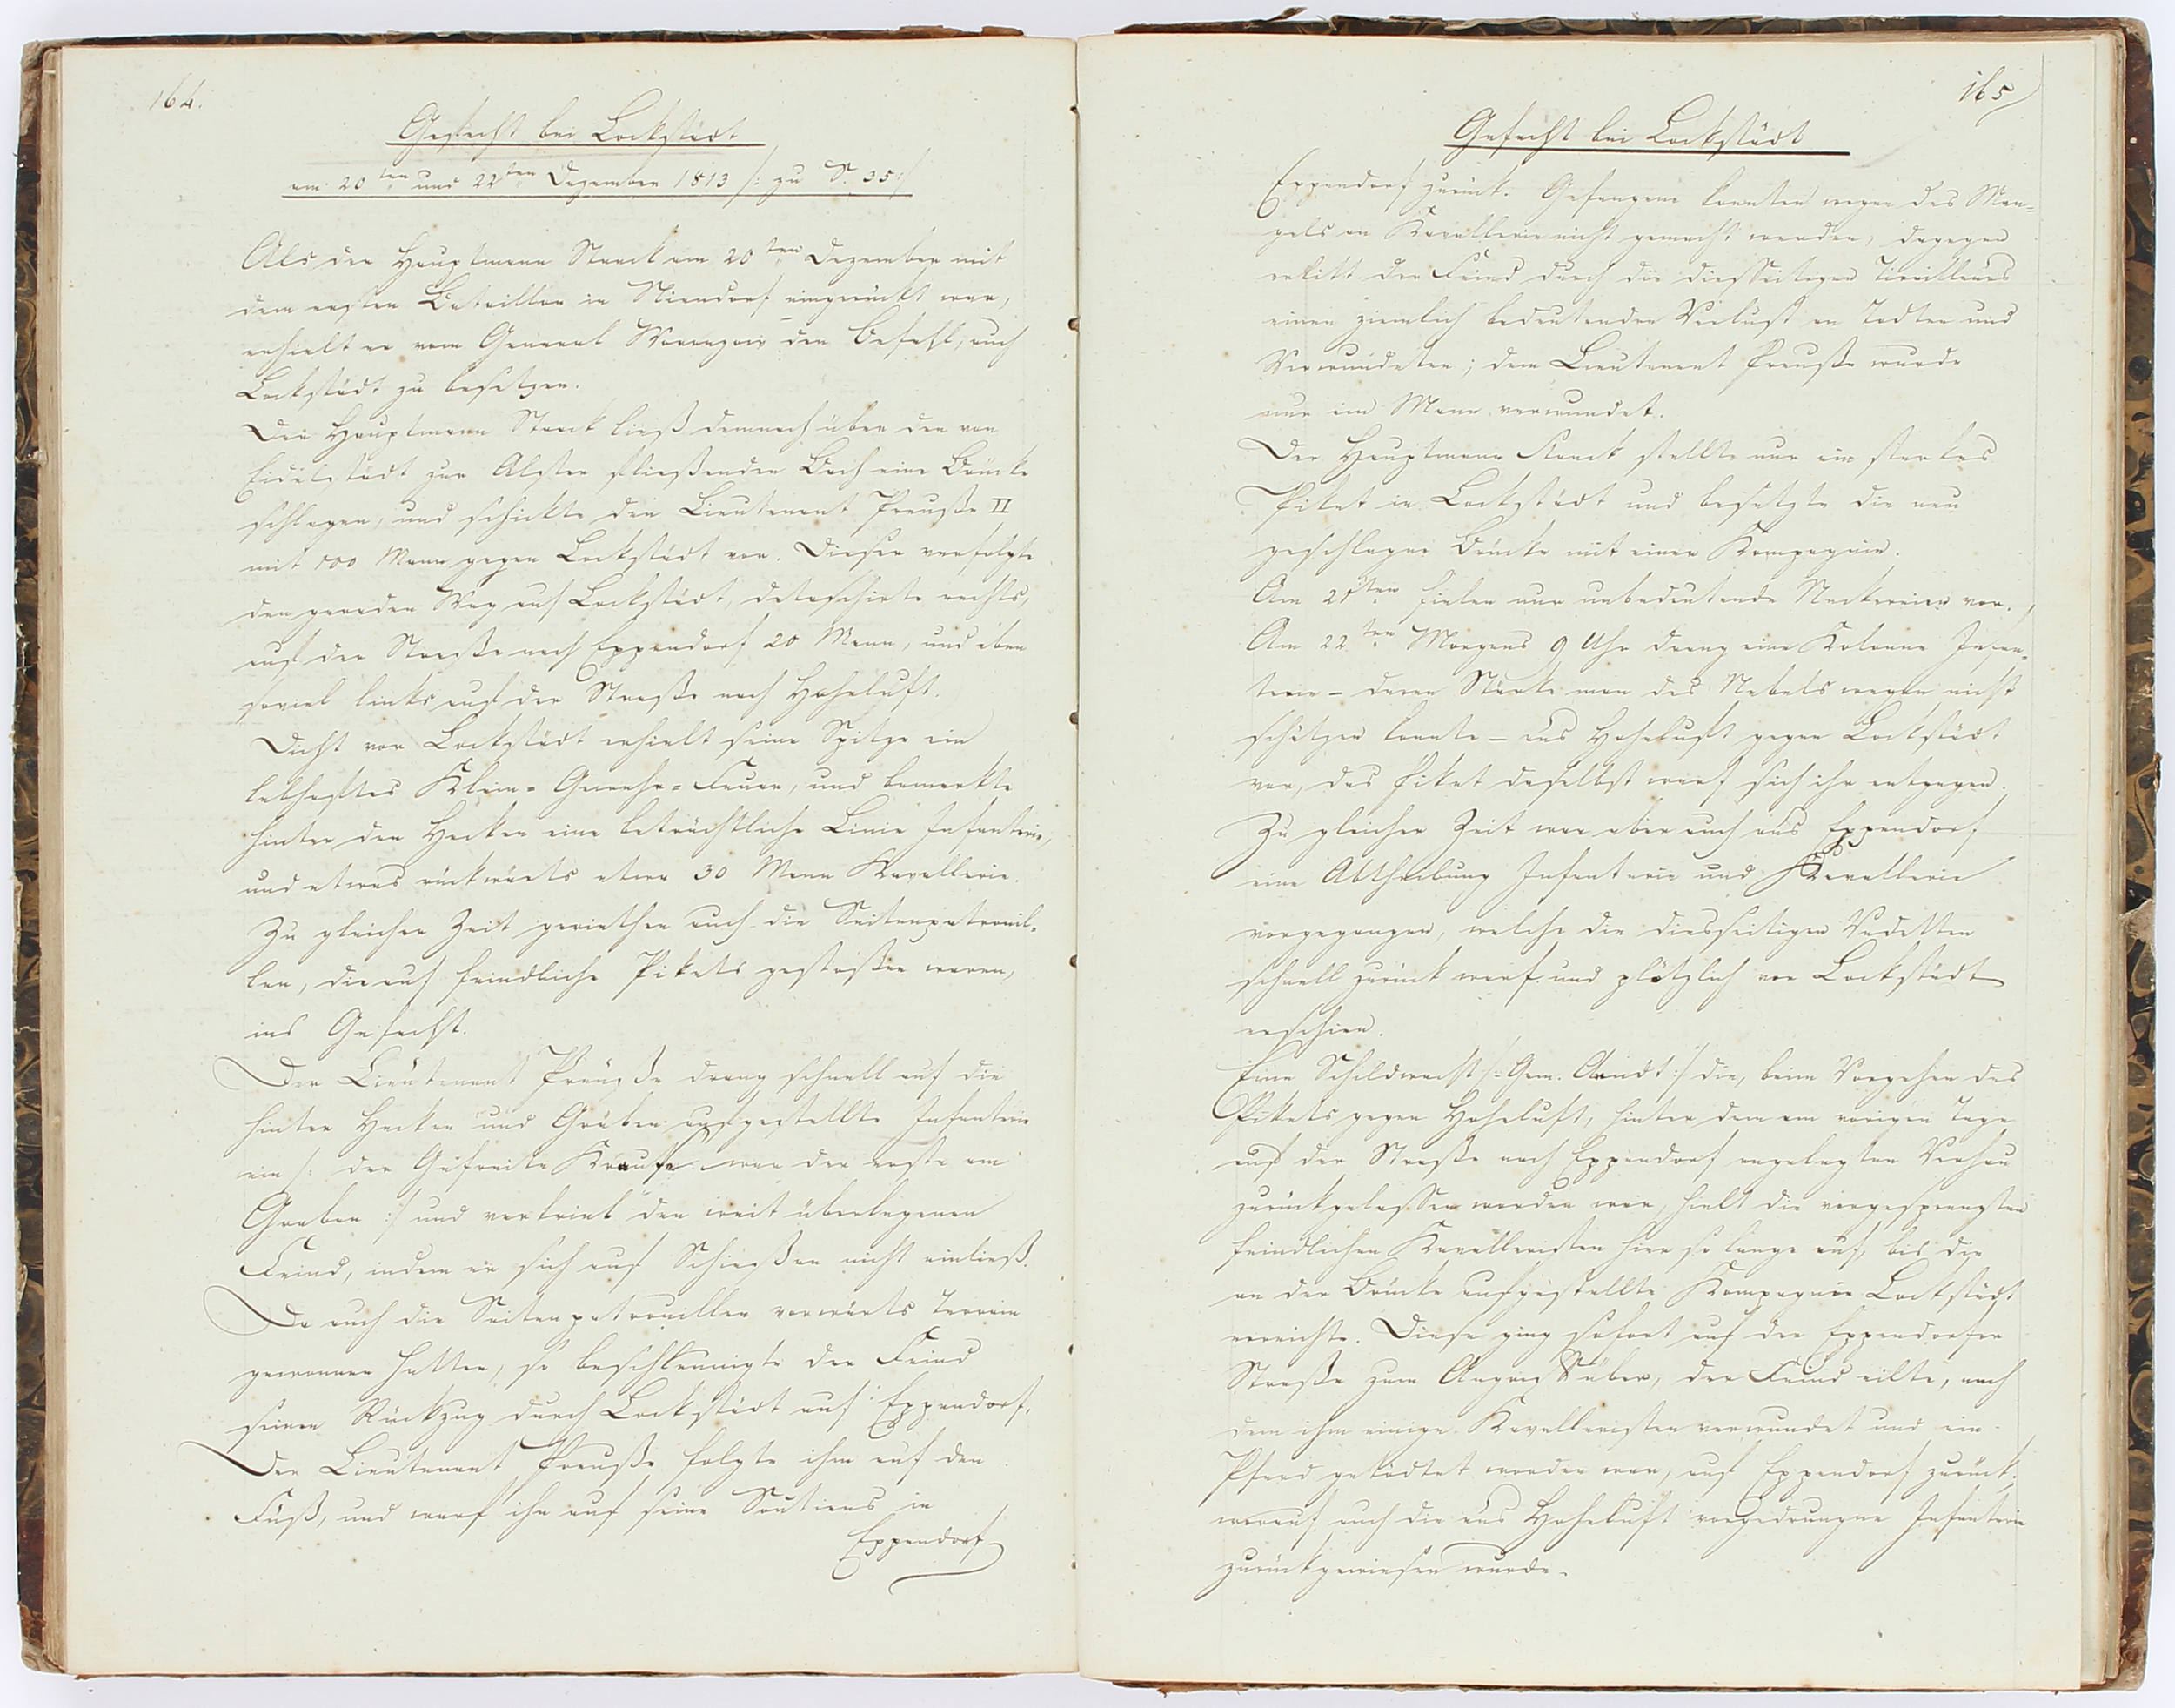 164.
Gefecht bei Lockstädt
am 20ten und 22ten Dezember 1813 /: zu S. 35 :/
Als der Hauptmann Starck am 20ten Dezember mit
dem ersten Bataillon in Niendorf eingerückt war,
erhielt er vom General Woronzow den Befehl, auch
Lockstädt zu besetzen.
Der Hauptmann Starck ließ demnach über den von
Eidelstädt zur Alster fließenden Bach eine Brücke
schlagen, und schickte den Lieutenant Preuße II
mit 100 Mann gegen Lockstädt vor. Dieser verfolgte
den geraden Weg auf Lockstädt, detaschirte rechts,
auf der Straße nach Eppendorf 20 Mann, und eben
soviel links auf der Straße nach Hoheluft.
Dicht vor Lockstädt erhielt seine Spitze ein
lebhaftes Klein-Gewehr-Feuer, und bemerkte
hinter den Hecken eine beträchtliche Linie Infanterie,
und etwas rückwärts etwa 30 Mann Kavallerie.
Zu gleicher Zeit geriethen auch die Seitenpatrouil-
len, die auf feindliche Pikets gestoßen waren,
ins Gefecht.
Der Lieutenant Preuße drang schnell auf die
hinter Hecken und Gräben aufgestellte Infanterie
ein /: der Gefreite Krause war der erste am
Graben :/ und vertrieb den weit überlegenen
Feind, indem er sich auf Schießen nicht einließ.
Da auch die Seitenpatrouillen vorwärts Terrain
gewonnen hatten, so beschleunigte der Feind
seinen Rückzug durch Lockstädt auf Eppendorf.
Der Lieutenant Preuße folgte ihm auf den
Fuß, und warf ihn auf seine Soutiens in
Eppendorf
165
Gefecht bei Lockstädt
Eppendorf zurück. Gefangene konnten wegen des Man-
gels an Kavallerie nicht gemacht werden, dagegen
erlitt der Feind durch die diesseitigen Tirailleurs
einen ziemlich bedeutenden Verlust an Todten und
Verwundeten; dem Lieutenant Preuße wurde
nur ein Mann verwundet.
Der Hauptmann Starck stellte nur ein starkes
Piket in Lockstädt und besetzte die neu
geschlagene Brücke mit einer Kompagnie.
Am 21ten fielen nur unbedeutende Neckereien vor.
Am 22ten Morgens 9 Uhr drang eine Kolonne Infan-
terie – deren Stärke man des Nebels wegen nicht
schätzen konnte – aus Hoheluft gegen Lockstädt
vor, das Piket daselbst warf sich ihr entgegen.
Zu gleicher Zeit war aber auch aus Eppendorf
eine Abtheilung Infanterie und Kavallerie
vorgegangen, welche die diesseitigen Vedetten
schnell zurück warf und plötzlich vor Lockstädt
erschien.
Eine Schildwacht /: Gem. Arndt :/ die, beim Vorgehen des
Pikets gegen Hoheluft, hinter dem am vorigen Tage
auf der Straße nach Eppendorf angelegten Verhau
zurückgelassen worden war, hielt die vorgesprengten
feindlichen Kavalleristen hier so lange auf, bis die
an der Brücke aufgestellte Kompagnie Lockstädt
erreichte. Diese ging sofort auf der Eppendorfer
Straße zum Angriff über, der Feind eilte, nach
dem ihm einige Kavalleristen verwundet und ein
Pferd getödtet worden war, auf Eppendorf zurück,
worauf auch die aus Hoheluft vorgedrungne Infanterie
zurückgewiesen wurde.